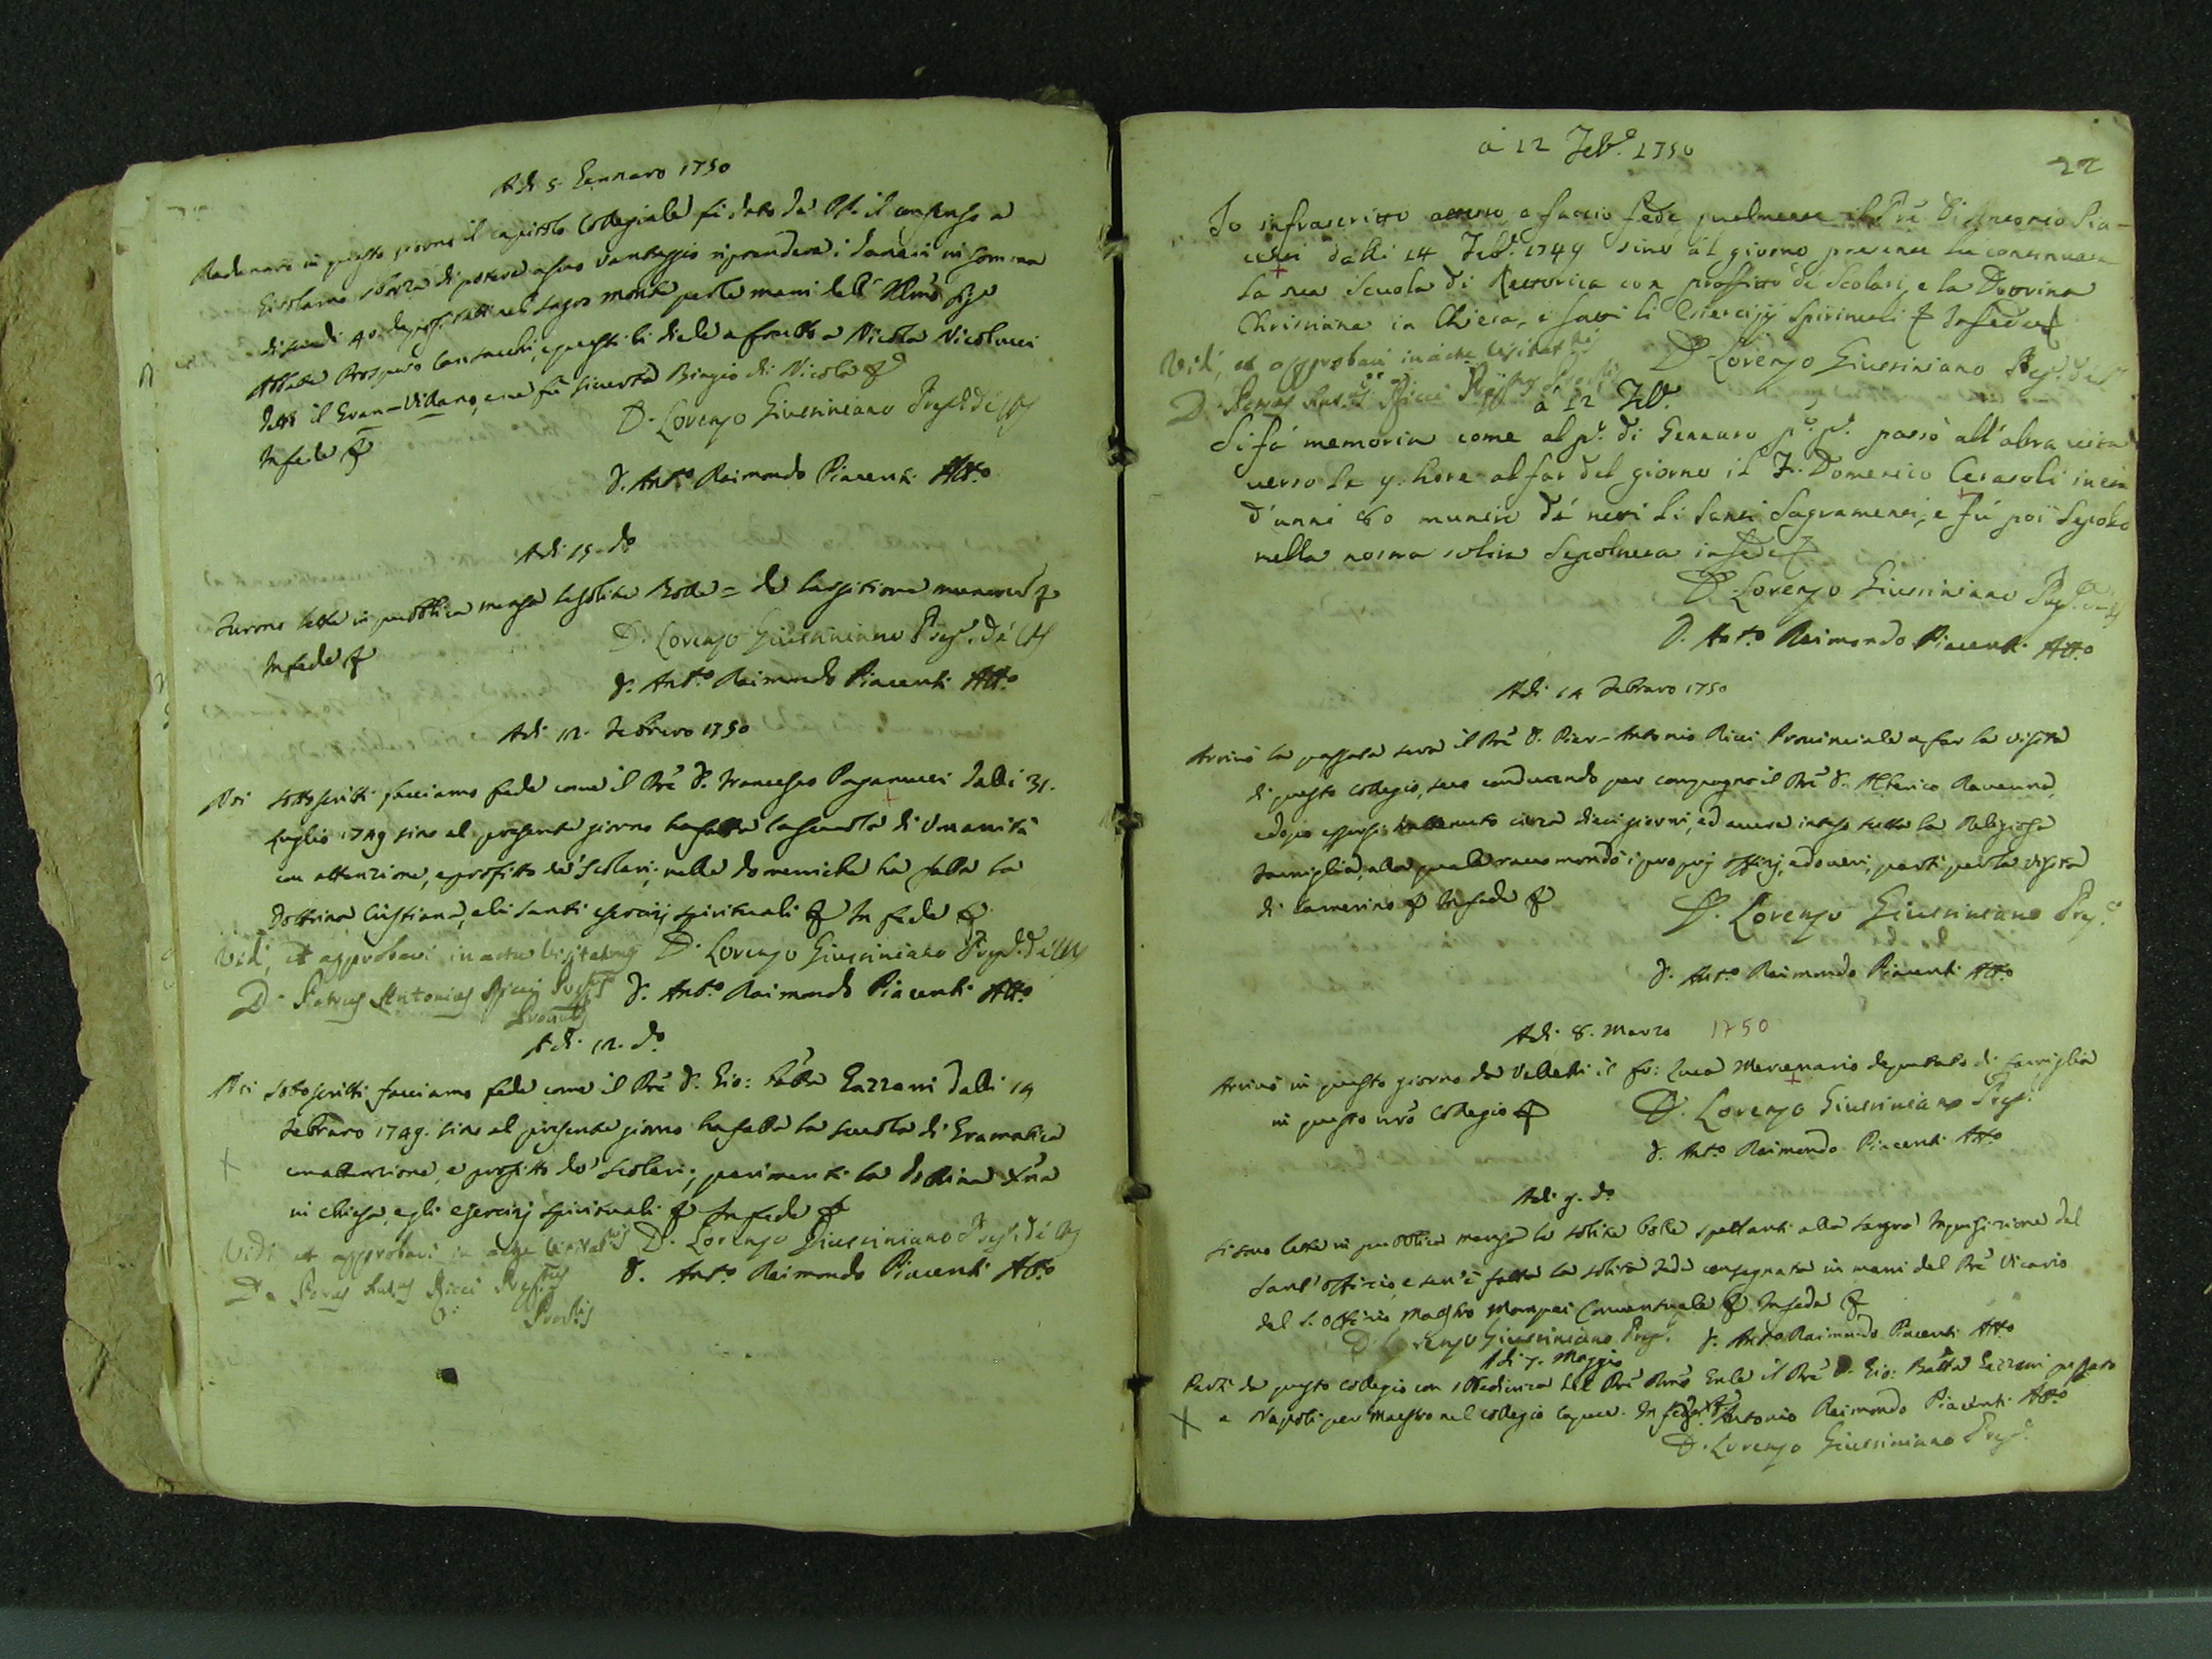 Adi 5 Gennaro 1750
Radunato in questo giorno il capitolo Collegiale fu dato da il consenso a
Girolamo Sforza di potere a suo vantaggio riprendere i danari in somma
di scudi 40 nel sagro monte per le mani dell' Illmo Sigr
Abbate Prospero e questi li diede a frutto a Nicola Nicolucci
detto il Gran-Villano, e ne fu sicurtà Biagio di Nicola
In fede
D. Lorenzo Giustiniano Prep.to
D. Ant.o Raimondo Piacenti Att.o
Adi 15. do
Furono lette in pubblica mensa le solite Bolle = de largitione munerum
In fede
D. Lorenzo Giustiniano Prep.to
D. Ant.o Raimondo Piacenti Att.o
Adi 12. Febraro 1750
Noi sottoscritti facciamo fede come il Pre D. Francesco Paganucci dalli 31.
Luglio 1749 sino al presente giorno ha fatta la scuola di Umanità
con attenzione, e profitto de' Scolari; nelle domeniche ha fatta la
Dottrina Cristiana, e li santi esercizj spirituali In fede
Vidi, et approbavi in actu visitationis D. Lorenzo Giustiniano Prep.to
D. Petrus Antonius Ricci Prep.tus D. Ant.o Raimondo Piacenti Att.o
Provlis
Adi 12. do
Noi sottoscritti facciamo fede come il Pre D. Gio: Batta Gazzani dalli 14
Febraro 1749. sino al presente giorno ha fatta la scuola di Gramatica
con attenzione, e profitto de' scolari; parimenti la dottrina Xna
in chiesa, e gli esercizj spirituali In fede
Vidi et approbavi in actu visitatnis D. Lorenzo Giustiniano Prep.to
D. Petrus Ant.us Ricci Prep.tus D. Ant.o Raimondo Piacenti Att.o
Provlis
22
a 12 Feb.o 1750
Io infrascritto attesto e faccio fede qualmente il Pre D. Antonio Pia-
centi dalli 14 Feb.o 1749 sino al giorno presente hà continuata
la sua Scuola di Rettorica con profitto de' Scolari, e la Dottrina
Christiana in Chiesa, e fatti li Esercizij Spirituali In fede
Vidi, et approbavi in actu visitat.nis D. Lorenzo Giustiniano Prep.to
D. Petrus Ant.us Ricci
a 12 Feb.o
Si fà memoria come al p.o di Gennaro p.o p.o passò all'altra vita
verso le 9. hore al far del giorno il F. Domenico Cerasoli in età
d'anni 60 munito dé santi Sagramenti, e fù poi sepolto
nella nostra solita Sepoltura in fede
D. Lorenzo Giustiniano Prep.to
D. Ant.o Raimondo Piacenti Att.o
Adi 14 Febraro 1750
Arrivò la passata sera il Pre D. Pier-Antonio Ricci Provinciale a far la visita
di questo Collegio, seco conducendo per compagno il Pre D. Alterico Ravenna,
e dopo essersi trattenuto circa dieci giorni, ed avere inteso tutta la Religiosa
Famiglia, alla quale raccomandò i proprj offizj, e doveri, partì per la visita
di Camerino In fede
D. Lorenzo Giustiniano Prep.to
D. Ant.o Raimondo Piacenti Att.o
Adi 8. Marzo 1750
Arrivò in questo giorno da Velletri il fr: Luca Mercenario deputato di famiglia
in questo nro Collegio
D. Lorenzo Giustiniano Prep.
D. Ant.o Raimondo Piacenti Att.o
Adi 9. do
Si sono lette in pubblica mensa le solite bolle spettanti alla sagra Inquisizione del
Sant' Offizio, e sen'è fatta la solita fede consegnata in mani del Pre Vicario
del S. Offizio Maestro Conventuale In fede
D. Lorenzo Giustiniano Prep. D. Ant.o Raimondo Piacenti Att.o
Adi 7. Maggio
Partì da questo collegio con obbedienza del Pre Rmo Gnle il Pre D. Gio: Batta Gazzani passato
a Napoli per Maestro nel collegio Capece. In fede D. Antonio Raimondo Piacenti Att.o
D. Lorenzo Giustiniano Prep.to